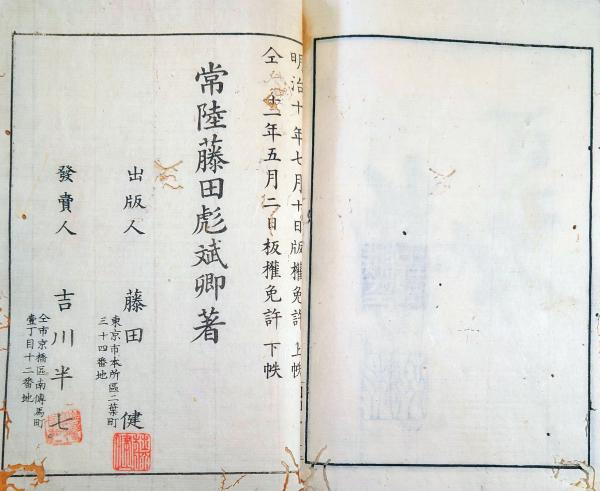 明治十年七月十日版權免許 上帙
仝十一年五月二日板權免許 下帙
常陸藤田彪斌卿著
出版人 藤田 健
東京市本所區二葉町
三十四番地
發賣人 吉川半七
仝市京橋區南傳馬町
壹丁目十二番地